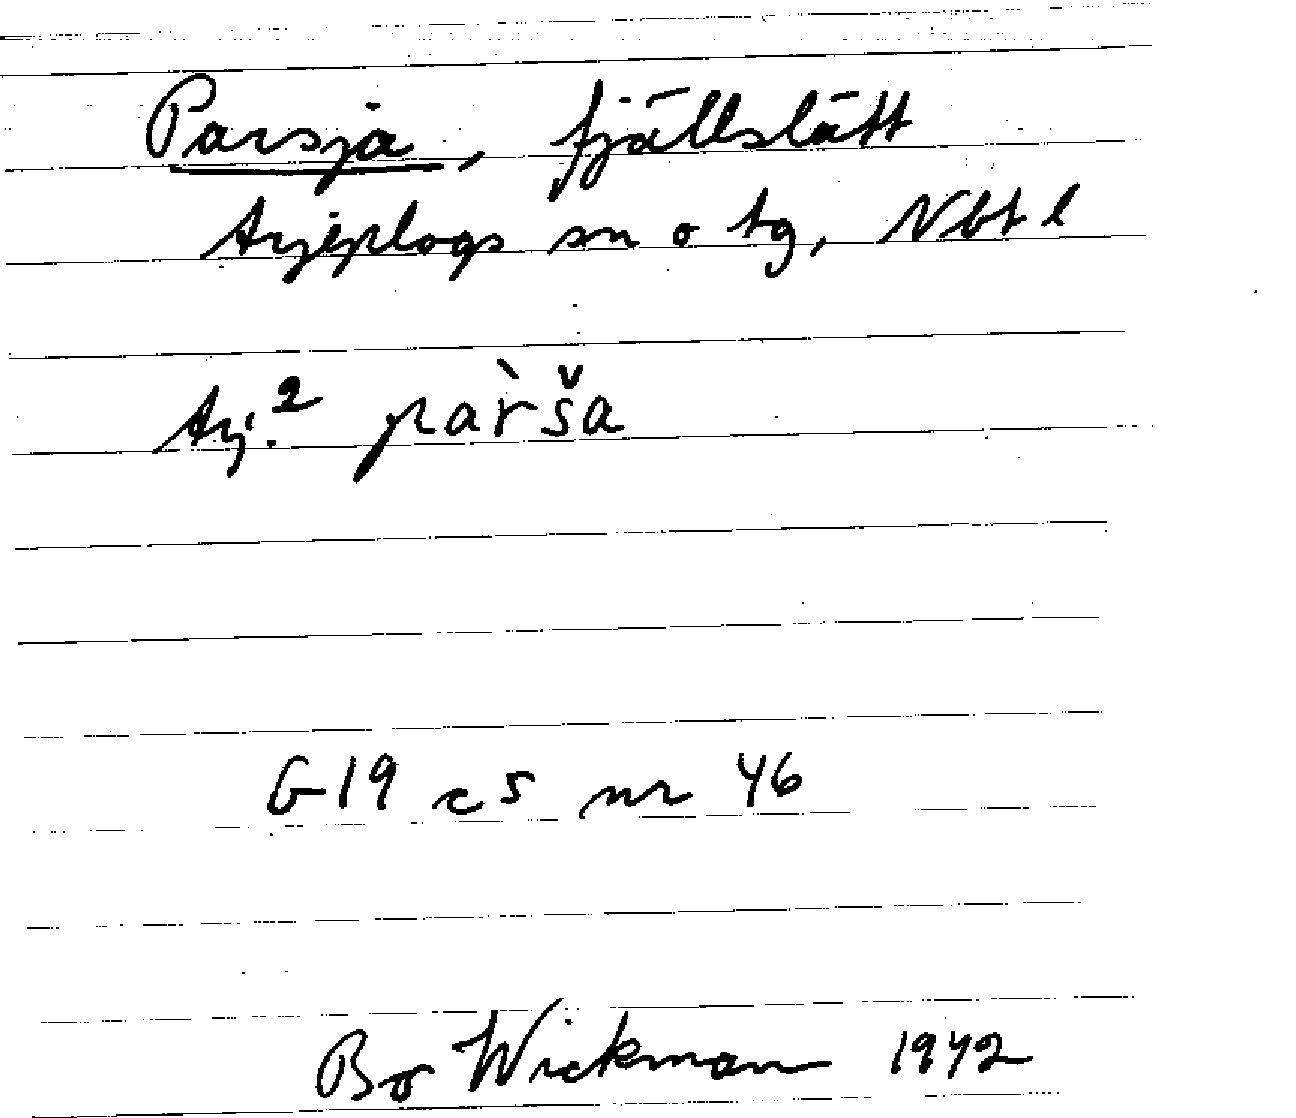 Parsja, fjällslätt
Arjeplogs sn o tg, Nbt l
Arj.² pàr̀ša
G19 c5 nr 46
Bo Wickman 1942